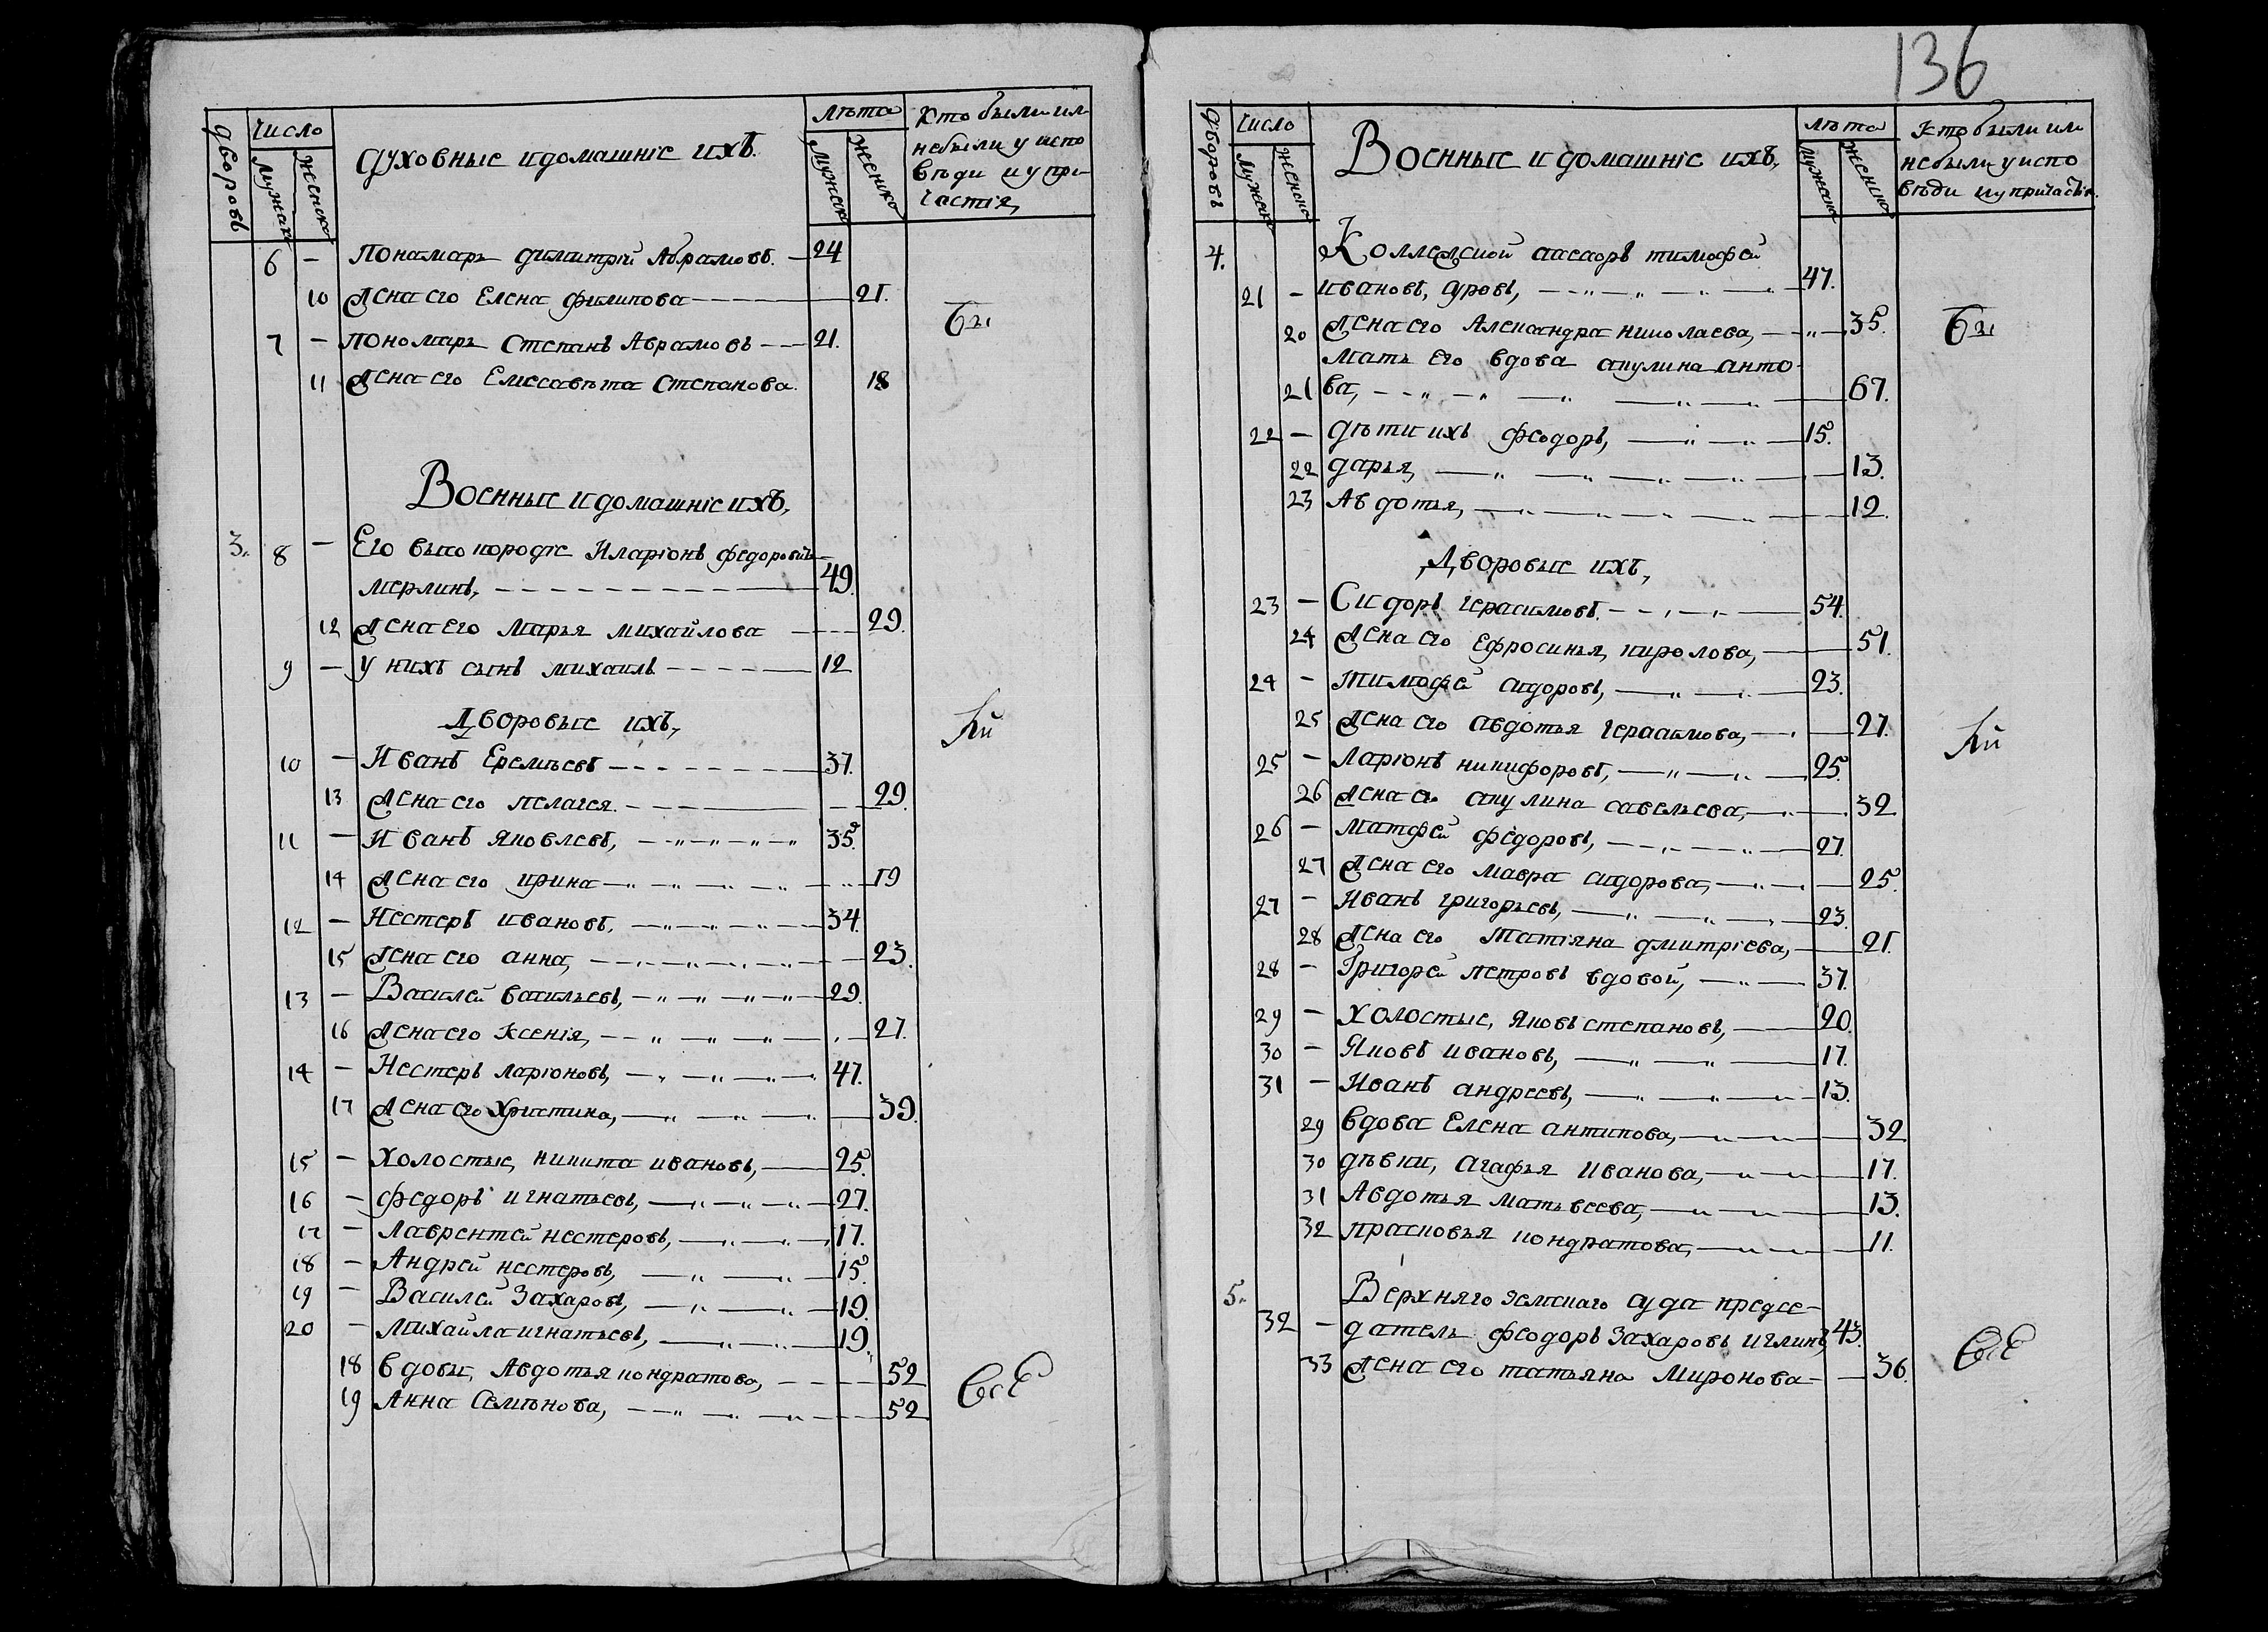 136
дворовъ
Число
мужска
женска
Духовные и домашнiе ихъ.
лѣта
мужска
женска
Кто были ил
небыли у испо
вѣди и у при-
частiя,
6 — Пономарь Димитрiй Абрамовъ. — 24
10 Жена его Елена Филипова — 21.
7 — Пономарь Стспанъ Аврамовъ — 21.
11 Жена его Елисавѣта Степанова. 18
Бы
Военные и домашнiе ихъ,
3. 8 — Его высокородiе Иларiонъ Федоровичь
Мерлинъ, — 49.
12 Жена его Марья Михайлова — 29.
9 — У нихъ сынъ Михаилъ — 12
Дворовые ихъ,
10 — Иванъ Еремѣевъ — 37.
13 Жена его Пелагея. — 29.
11 — Иванъ Яковлевъ, — 35.
14 Жена его Ирина — 19
12 — Нестеръ Ивановъ, — 34.
15 Жена его Анна, — 23.
13 — Василей Васильевъ, — 29.
16 Жена его Ксенiя, — 27.
14 — Нестеръ Ларiоновъ, — 47.
17 Жена его Христина, — 39.
15 — Холостые, Никита Ивановъ, — 25.
16 — Федоръ Игнатьевъ, — 27.
17 — Лаврентей Нестеровъ, — 17.
18 — Андрей Нестеровъ, — 15.
19 — Василей Захаровъ, — 19.
20 — Михайла Игнатьевъ, — 19.
18 Вдовы, Авдотья Кондратова, — 52
19 Анна Семѣнова, — 52
дворовъ
Число
мужска
женска
Военные и домашнiе ихъ,
лѣта
мужска
женска
Кто были ил
небыли у испо
вѣди и у причастiя.
4. Коллежской ассесоръ Тимофей
21 — Ивановъ, Дуровъ, — 47.
20 Жена его Александра Николаева, — 35.
Мать его вдова Акулина Анто-
21 ва, — 67.
22 — Дѣти ихъ Феодоръ, — 15.
22 Дарья, — 13.
23 Авдотья, — 12.
Бы
Дворовые ихъ,
23 — Сидоръ Герасимовъ. — 54.
24 Жена его Ефросинья, Киролова, — 51.
24 — Тимофей Сидоровъ, — 23.
25 Жена его Авдотья Герасимова, — 27.
25 — Ларiонъ Никифоровъ, — 25.
26 Жена его Акулина Савельева, — 32
26 — Матфей Федоровъ, — 27.
27 Жена его Мавра Сидорова, — 25.
27 — Иванъ Григорьевъ, — 23.
28 Жена его Татiяна Дмитрiева, — 21.
28 — Григорей Петровъ вдовой, — 37.
29 — Холостые, Яковъ Степановъ, — 20.
30 — Яковъ Ивановъ, — 17.
31 — Иванъ Андреевъ, — 13.
29 Вдова Елена Антипова, — 32
30 Дѣвки, Агафья Иванова, — 17.
31 Авдотья Матьвеева, — 13.
32 Прасковья Кондратова, — 11.
5. Верхняго земскаго суда предсе-
32 — датель Феодоръ Захаровъ Иглинъ 43.
33 Жена его Татьяна Миронова — 36.